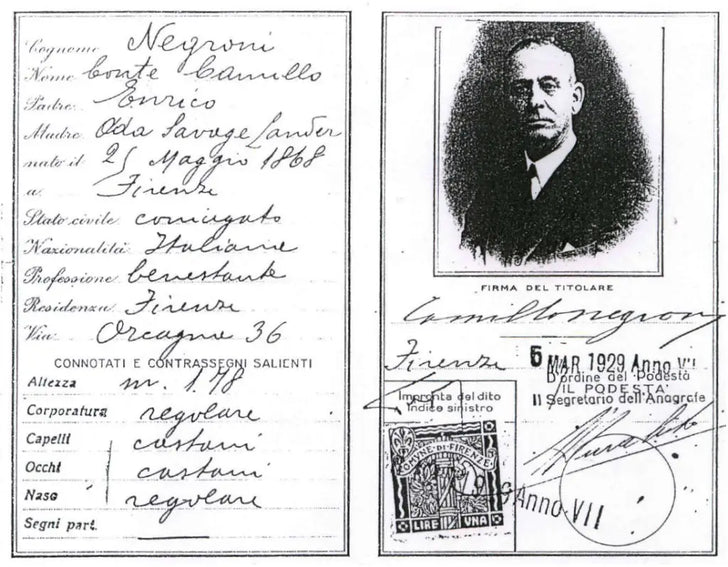 Cognome Negroni
Nome Conte Camillo
Padre Enrico
Madre Oda Savage Landor
nato il 25 Maggio 1868
a Firenze
Stato civile coniugato
Nazionalità Italiana
Professione benestante
Residenza Firenze
Via Orcagna 36
CONNOTATI E CONTRASSEGNI SALIENTI
Altezza m. 1.78
Corporatura regolare
Capelli castani
Occhi castani
Naso regolare
Segni part.
FIRMA DEL TITOLARE
Camillo Negroni
Firenze 6 MAR. 1929 Anno VII
D'ordine del Podestà
IL PODESTÀ
Il Segretario dell'Anagrafe
Impronta del dito
indice sinistro
COMUNE·DI·FIRENZE
LIRE UNA
9 Anno VII